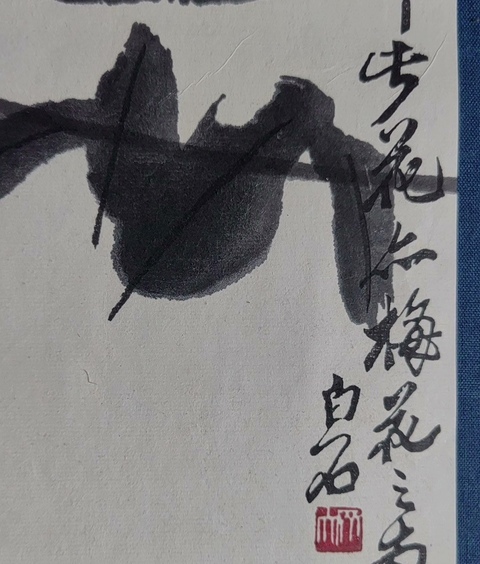 此花亦梅花之
白石